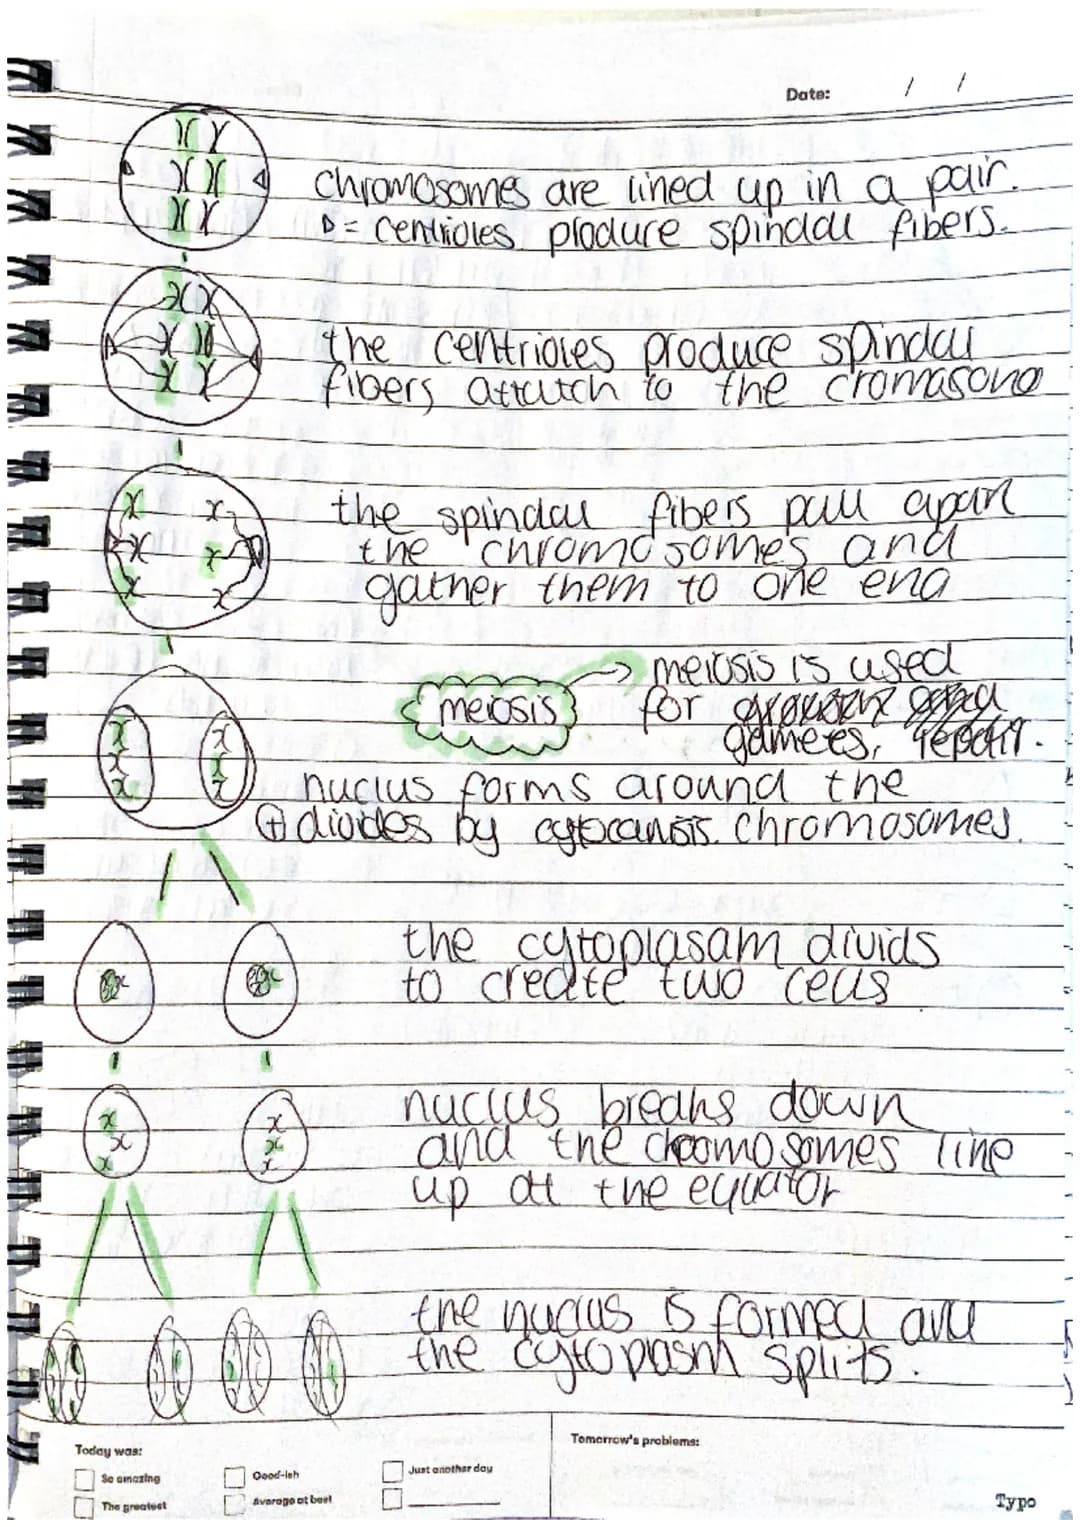 Date: / /
chromosomes are lined up in a pair.
D = centrioles produce spindal fibers.
the centrioles produce spindal
fibers attutch to the cromasone
the spindal fibers pull apart
the chromosomes and
gather them to one end
meiosis is used
meiosis for growth and
gametes, repair.
nuclus forms around the
+ divides by cytocanisis. chromosomes.
the cytoplasam divids
to create two cells
nuclus breaks down
and the chromosomes line
up at the equator
the nuclus is formed and
the cytoplasm splits.
Today was:
So amazing
The greatest
Good-ish
Average at best
Just another day
Tomorrow's problems:
Typo